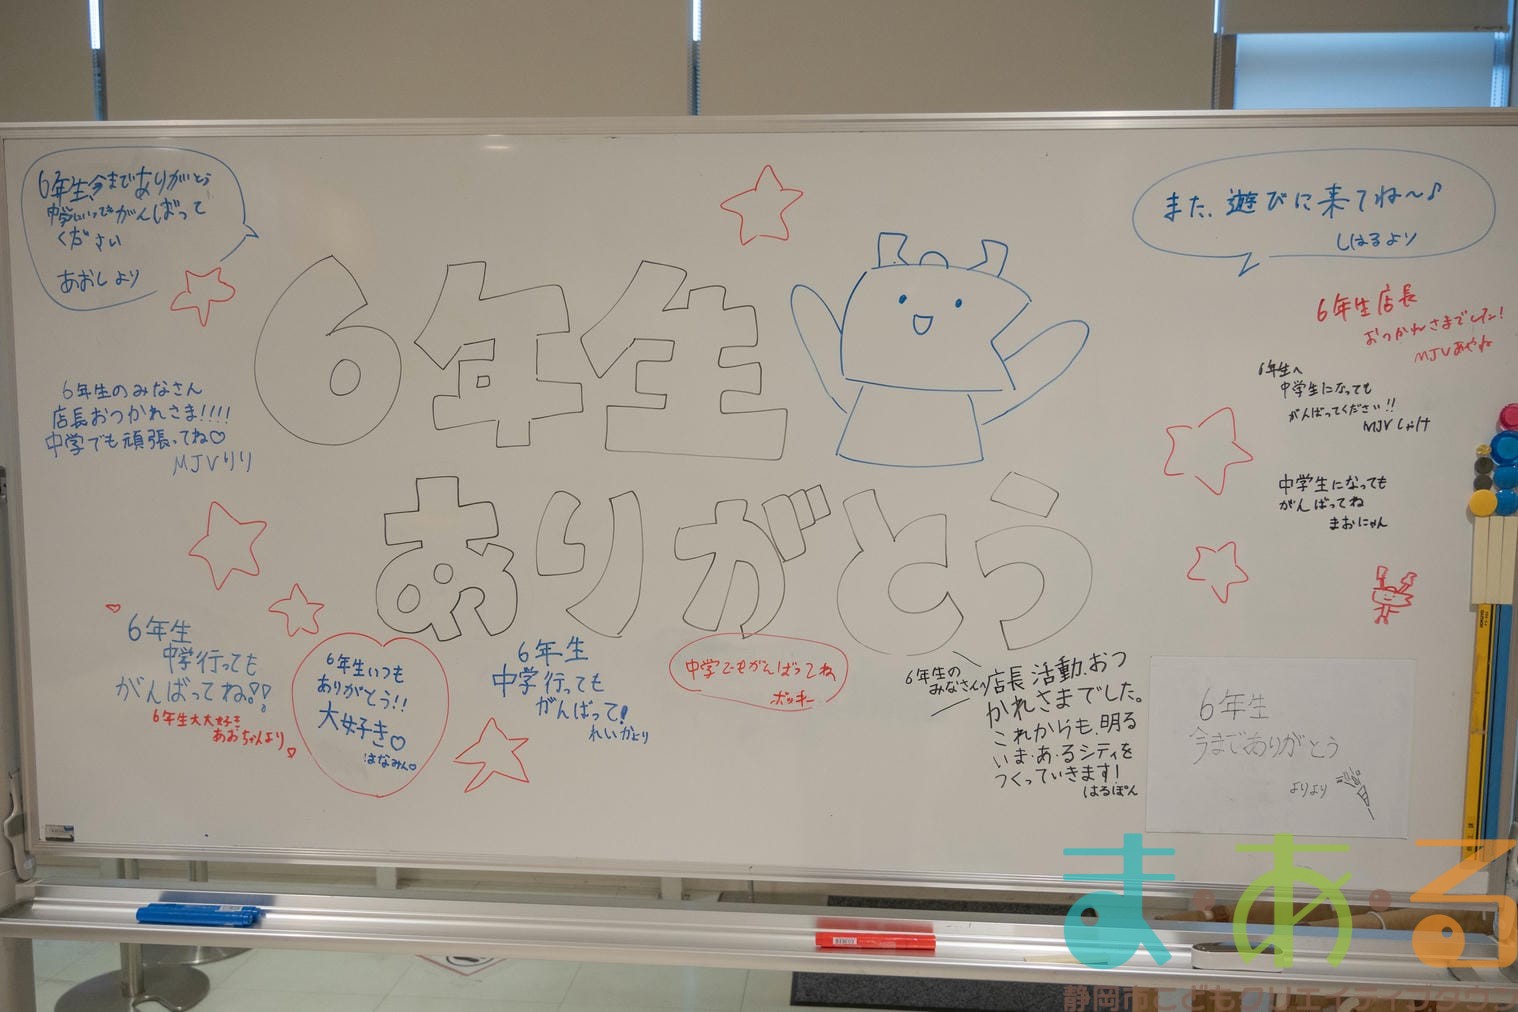 6年生、今までありがとう
中学にいってもがんばって
ください
あおしより
また、遊びに来てね〜♪
しはるより
6年生
ありがとう
6年生店長
おつかれさまでした!
MJVあやね
6年生のみなさん
店長おつかれさま!!!!
中学でも頑張ってね♡
MJVりり
6年生へ
中学生になっても
がんばってください!!
MJVしゃけ
中学生になっても
がんばってね
まおにゃん
6年生
中学行っても
がんばってね!!
6年生大大好き
あおちゃんより
6年生いつも
ありがとう!!
大好き♡
はなみん♡
6年生
中学行っても
がんばって!
れいかより
中学でもがんばってね
ポッキー
6年生の
みなさんの店長活動、おつ
かれさまでした。
これからも、明る
いま・あ・るシティを
つくっていきます!
はるぽん
6年生
今までありがとう
よりより
ま・あ・る
静岡市こどもクリエイティブタウン